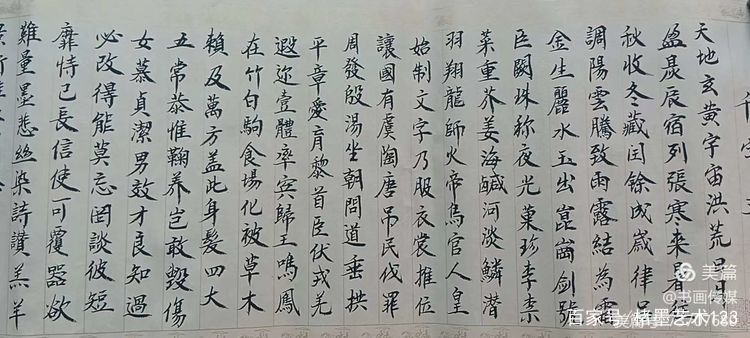 天地玄黃宇宙洪荒日月
盈昃辰宿列張寒来暑往
秋收冬藏闰餘成歲律
調陽雲騰致雨露結為霜
金生麗水玉出崑崗剑號
臣闕珠称夜光菓珍李柰
菜重芥姜海鹹河淡鱗潜
羽翔龍師火帝鳥官人皇
始制文字乃服衣裳推位
讓國有虞陶唐吊民伐罪
周發殷湯坐朝問道垂拱
平章愛育黎首臣伏戎羌
遐迩壹體率宾歸王鳴鳳
在竹白駒食場化被草木
賴及萬方盖此身髮四大
五常恭惟鞠养岂敢毁傷
女慕貞潔男效才良知過
必改得能莫忘罔談彼短
靡恃己長信使可覆器欲
難量墨悲丝染詩讚羔羊
美篇
@书画传媒
百家号/楮墨艺术123